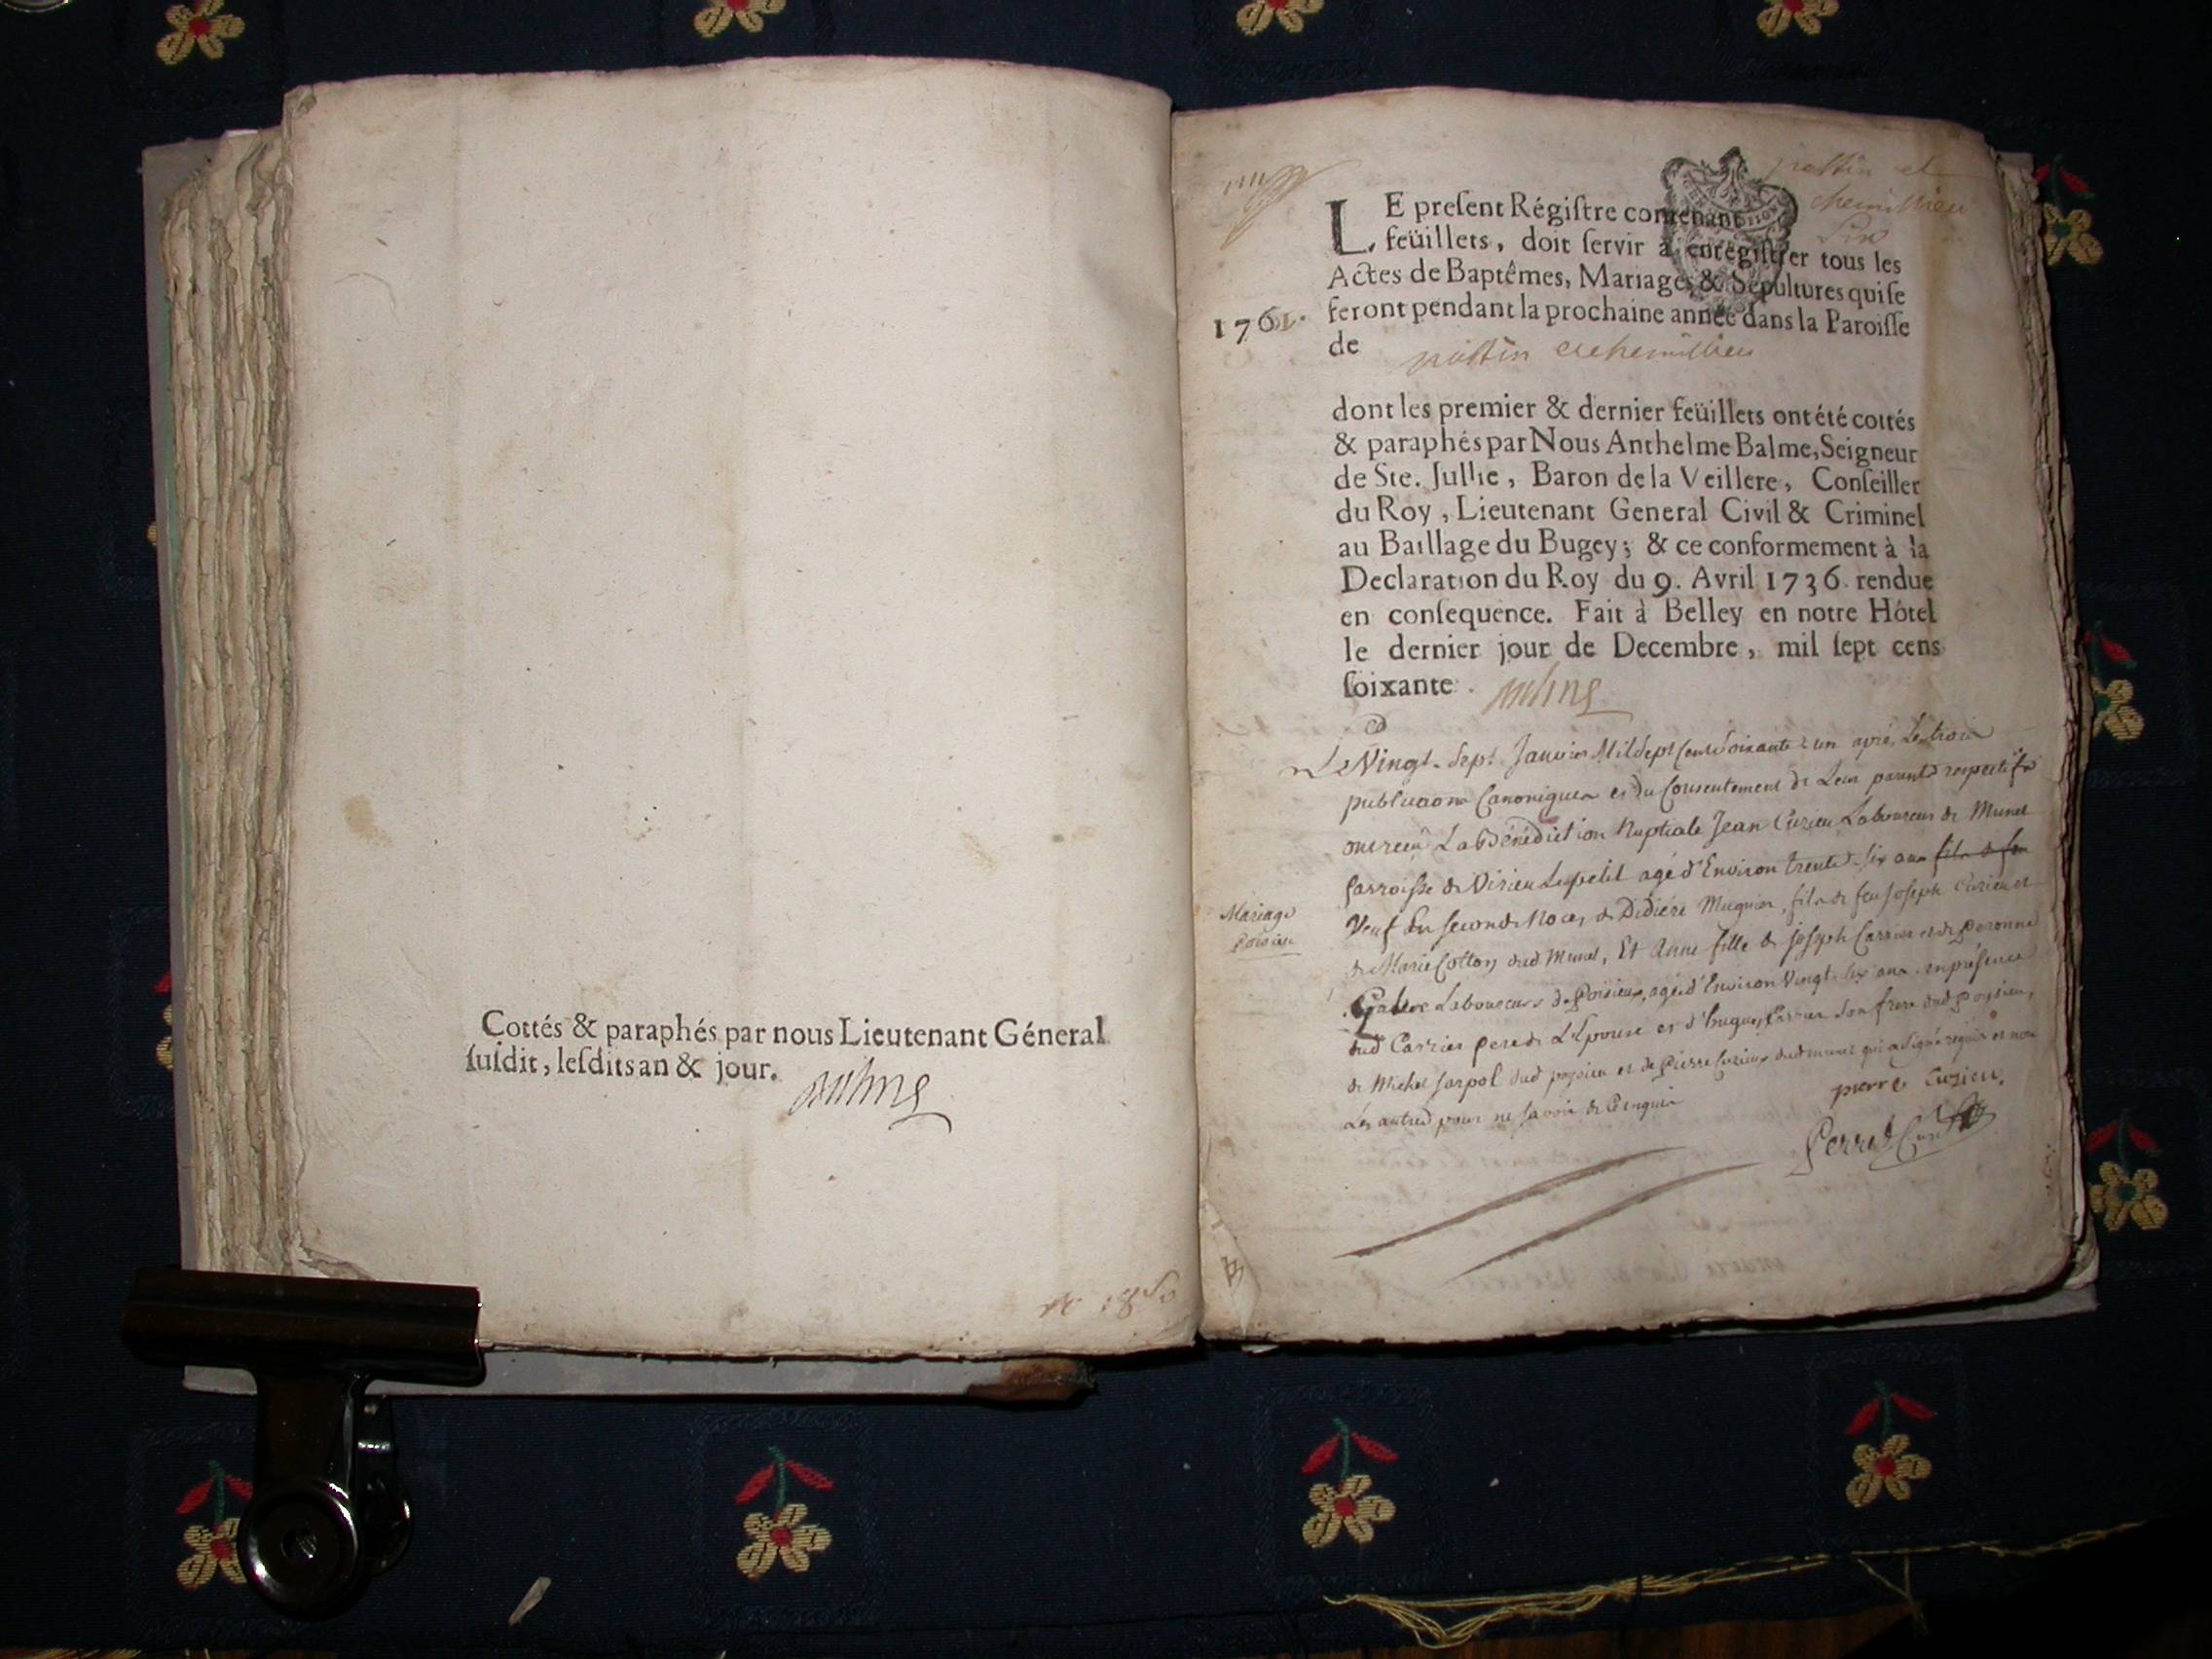 Cottés & paraphés par nous Lieutenant Géneral
ſuſdit, leſdits an & jour.
LE preſent Régiſtre contenant
feüillets, doit ſervir à enrégiſtrer tous les
Actes de Baptêmes, Mariages & Sépultures qui ſe
feront pendant la prochaine année dans la Paroiſſe
1761.
de
dont les premier & dernier feüillets ont été cottés
& paraphés par Nous Anthelme Balme, Seigneur
de Ste. Jullie, Baron de la Veillere, Conſeiller
du Roy, Lieutenant General Civil & Criminel
au Baillage du Bugey; & ce conformement à la
Declaration du Roy du 9. Avril 1736. rendue
en conſequence. Fait à Belley en notre Hôtel
le dernier jour de Decembre, mil ſept cens
ſoixante.
Le Vingt-Sept Janvier Mil Sept Cent Soixante un après Les trois
publications Canoniques et du Consentement de Leur parents respectifs
ont reçû La Bénédiction Nuptiale Jean Cuzieu Laboureur de Munet
parroisse de Virieu Le petit agé d'Environ trente-six ans fils de feu
Mariage
Veuf En Secondes Noces de Didiére Mugnier, fils de feu Joseph Cuzieu et
de Marie Cotton dud Munet, Et Anne fille de Joseph Carrier et de Peronne
Laboureurs de Poisieu, agée d'Environ Vingt-six ans en présence
dud Carrier pere de L'Epouse et d'hugues Carrier Son frere dud poysieu,
de Michel dud poysieu et de Pierre Cuzieu dud munet qui a Signé requis et non
Les autres pour ne Savoir de Ce enquis
pierre Cuzieu
Perret Curé